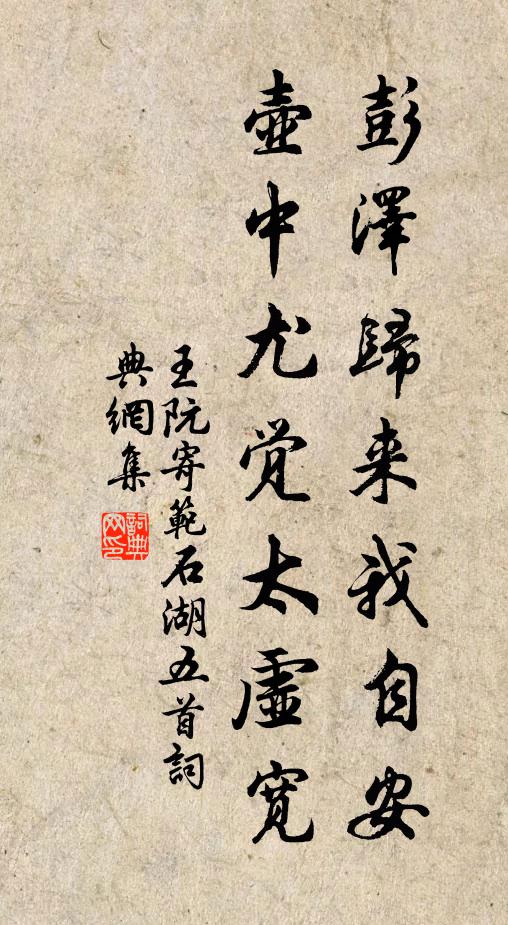 彭澤歸来我自安
壺中尤觉太虛寬
王阮寄範石湖五首詞
典網集
詞典网印